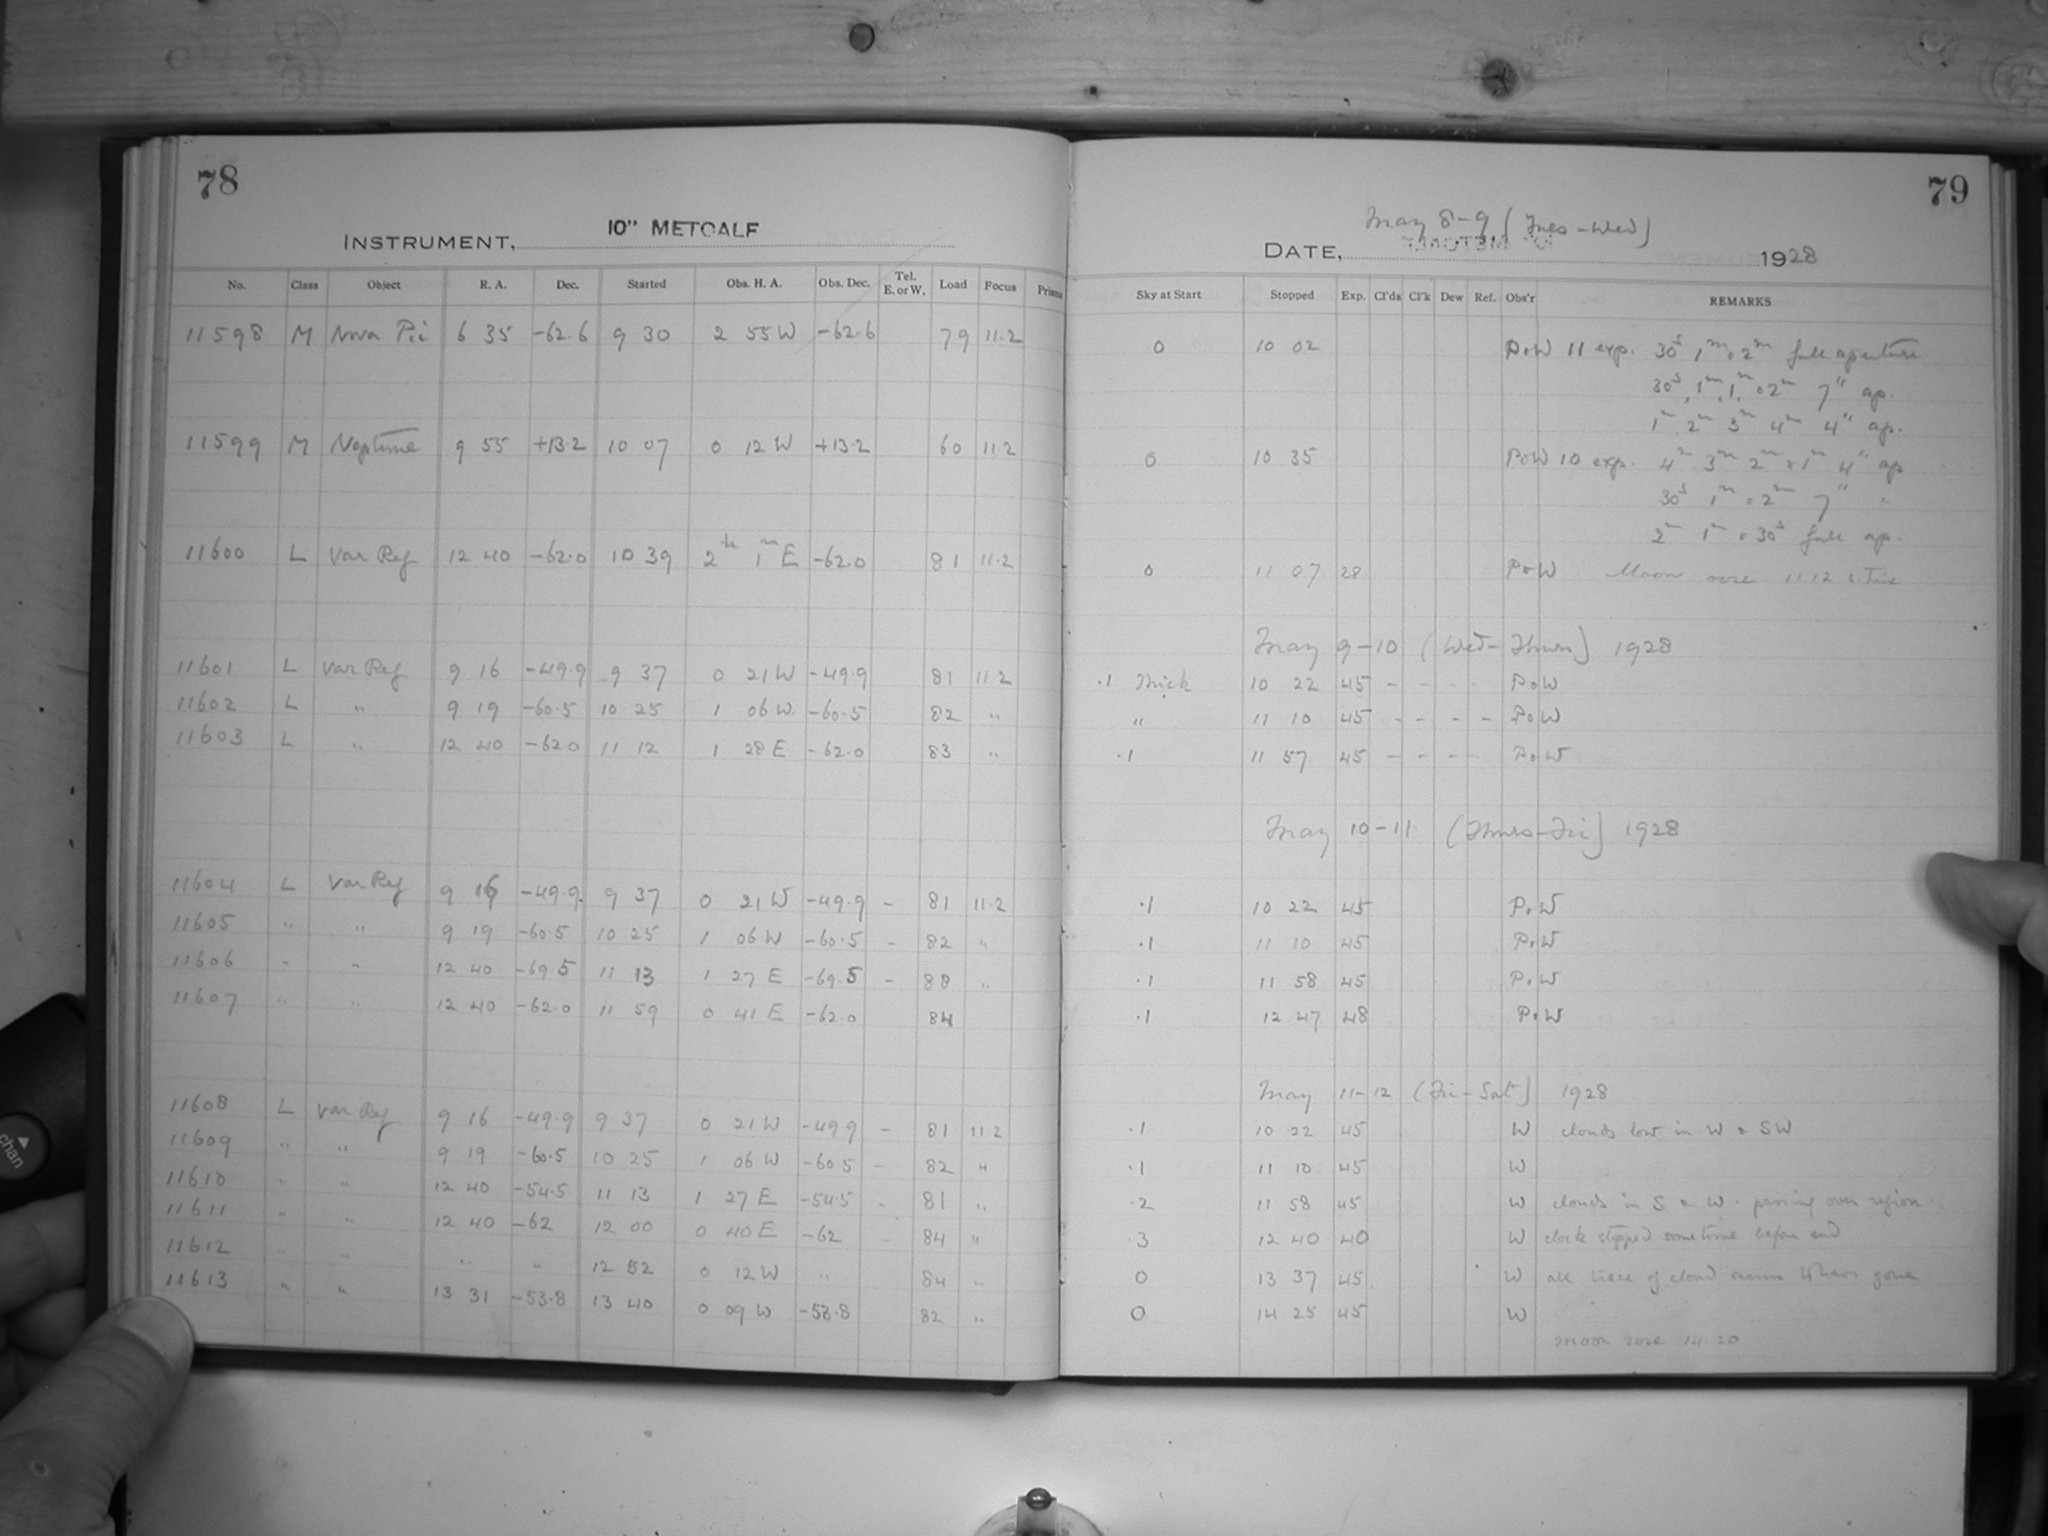 78
INSTRUMENT, 10" METCALF
No. Class Object R. A. Dec. Started Obs. H. A. Obs. Dec. Tel. E. or W. Load Focus Prisms
11598 M Nova Pic 6 35 -62.6 9 30 2 55 W -62.6 79 11.2
11599 M Neptune 9 55 +13.2 10 07 0 12 W +13.2 60 11.2
11600 L Var Reg 12 40 -62.0 10 39 2h 1m E -62.0 81 11.2
11601 L Var Reg 9 16 -49.9 9 37 0 21 W -49.9 81 11.2
11602 L " 9 19 -60.5 10 25 1 06 W -60.5 82 "
11603 L " 12 40 -62.0 11 12 1 28 E -62.0 83 "
11604 L Var Reg 9 16 -49.9 9 37 0 21 W -49.9 - 81 11.2
11605 " " 9 19 -60.5 10 25 1 06 W -60.5 - 82 "
11606 " " 12 40 -69.5 11 13 1 27 E -69.5 - 88 "
11607 " " 12 40 -62.0 11 59 0 41 E -62.0 84
11608 L Var Reg 9 16 -49.9 9 37 0 21 W -49.9 - 81 11.2
11609 " " 9 19 -60.5 10 25 1 06 W -60.5 - 82 "
11610 " " 12 40 -54.5 11 13 1 27 E -54.5 - 81 "
11611 " " 12 40 -62 12 00 0 40 E -62 - 84 "
11612 " " " " 12 52 0 12 W " 84 "
11613 " " 13 31 -53.8 13 40 0 09 W -53.8 82 "
79
DATE, May 8-9 (Tues-Wed) 1928
Sky at Start Stopped Exp. Cl'ds Cl'k Dew Ref. Obs'r REMARKS
0 10 02 P&W 11 exp. 30s 1m & 2m full aperture
30s, 1m, 1m & 2m 7" ap.
1m 2m 3m 4m 4" ap.
0 10 35 P&W 10 exp. 4m 3m 2m & 1m 4" ap
30s 1m & 2m 7" "
2m 1m & 30s full ap.
0 11 07 28 P&W Moon rose 11 12 S. Time
May 9-10 (Wed-Thurs) 1928
.1 Thick 10 22 45 - - - - P&W
" 11 10 45 - - - - P&W
.1 11 57 45 - - - - P&W
May 10-11 (Thurs-Fri) 1928
.1 10 22 45 P&W
.1 11 10 45 P&W
.1 11 58 45 P&W
.1 12 47 48 P&W
May 11-12 (Fri-Sat) 1928
.1 10 22 45 W clouds low in W & SW
.1 11 10 45 W
.2 11 58 45 W clouds in S & W. passing over region.
.3 12 40 40 W clock stopped sometime before end
0 13 37 45 W all trace of cloud seems to have gone
0 14 25 45 W
moon rose 14.20